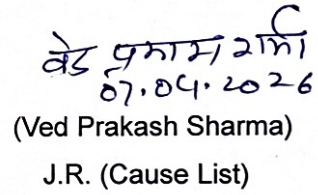 वेद प्रकाश शर्मा
07.04.2026
(Ved Prakash Sharma)
J.R. (Cause List)